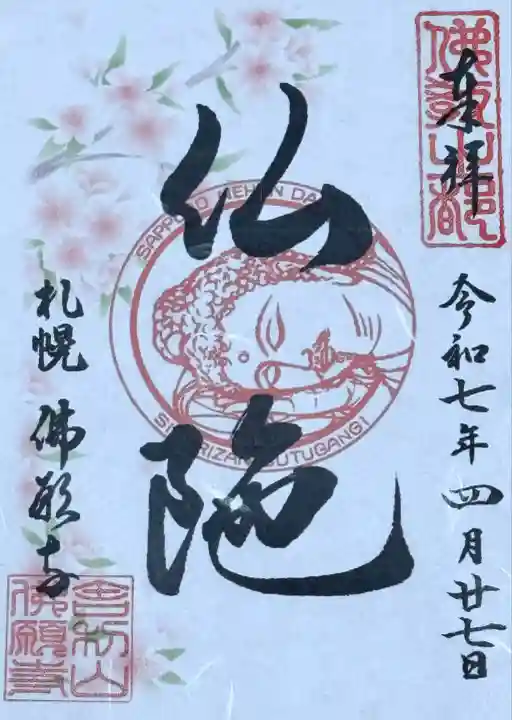 奉拝
令和七年四月廿七日
仏陀
SAPPORO NEHAN DA
BUTUGANGI
札幌 佛願寺
舎利山
佛願寺